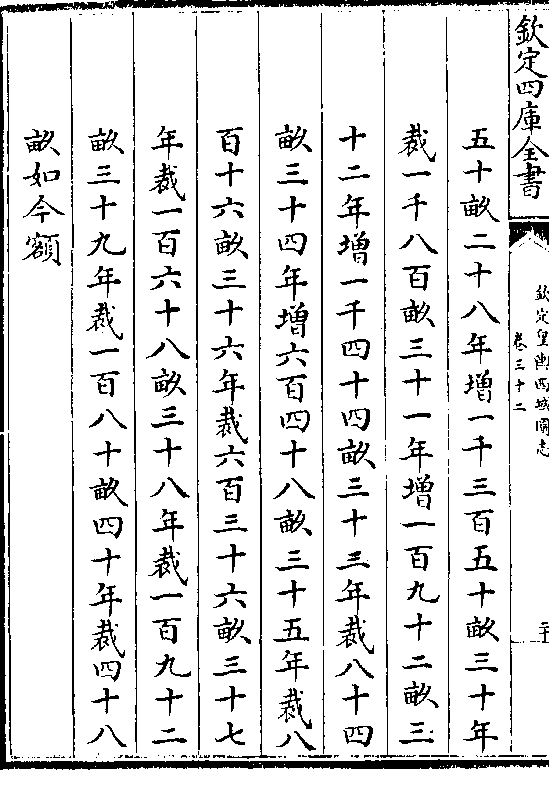 欽定四庫全書
欽定皇輿西域圖志
卷三十二
二十
五十畝二十八年增一千三百五十畝三十年
裁一千八百畝三十一年增一百九十二畝三
十二年增一千四十四畝三十三年裁八十四
畝三十四年增六百四十八畝三十五年裁八
百十六畝三十六年裁六百三十六畝三十七
年裁一百六十八畝三十八年裁一百九十二
畝三十九年裁一百八十畝四十年裁四十八
畝如今額